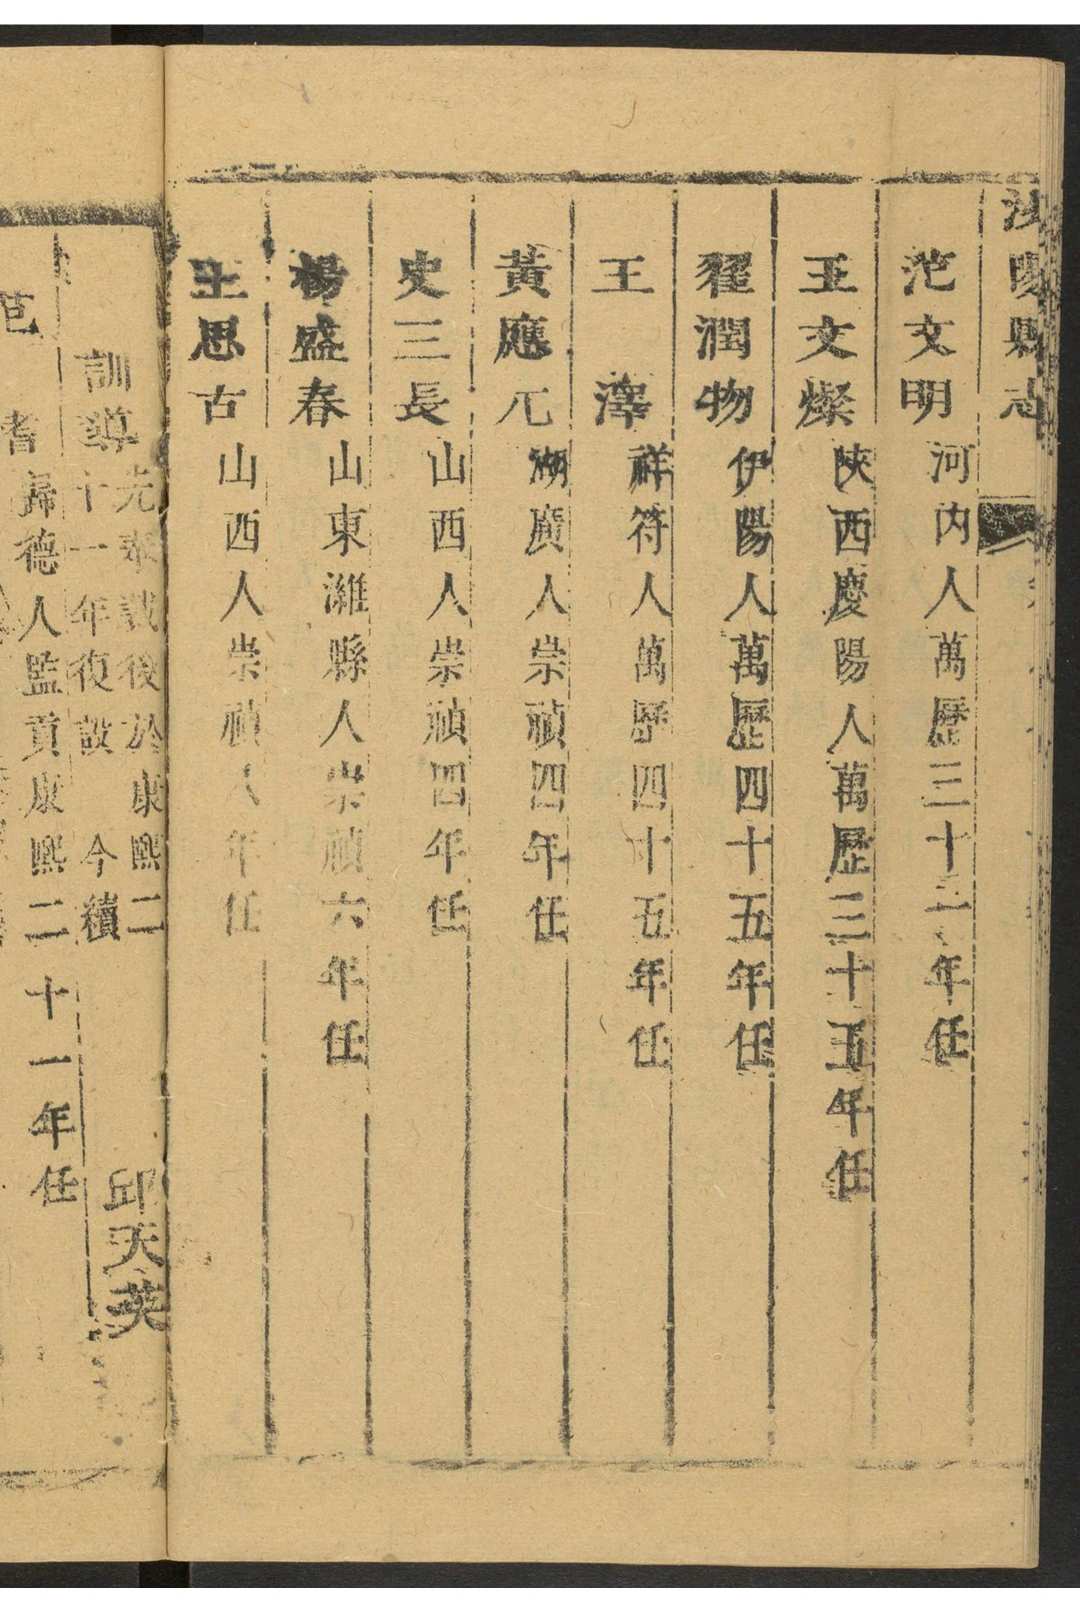 縣志
范文明河内人萬歷三十二年任
王文燦陝西慶陽人萬歷三十五年任
翟潤物伊陽人萬歷四十五年任
王澤祥符人萬歷四十五年任
黃應兀湖廣人崇禎四年任
史三長山西人崇禎四年任
楊盛春山東濰縣人崇禎六年任
王思古山西人崇禎八年任
訓導
先奉裁後於康熙二
十一年復設今續
邱天英
耆歸德人監貢康熙二十一年任